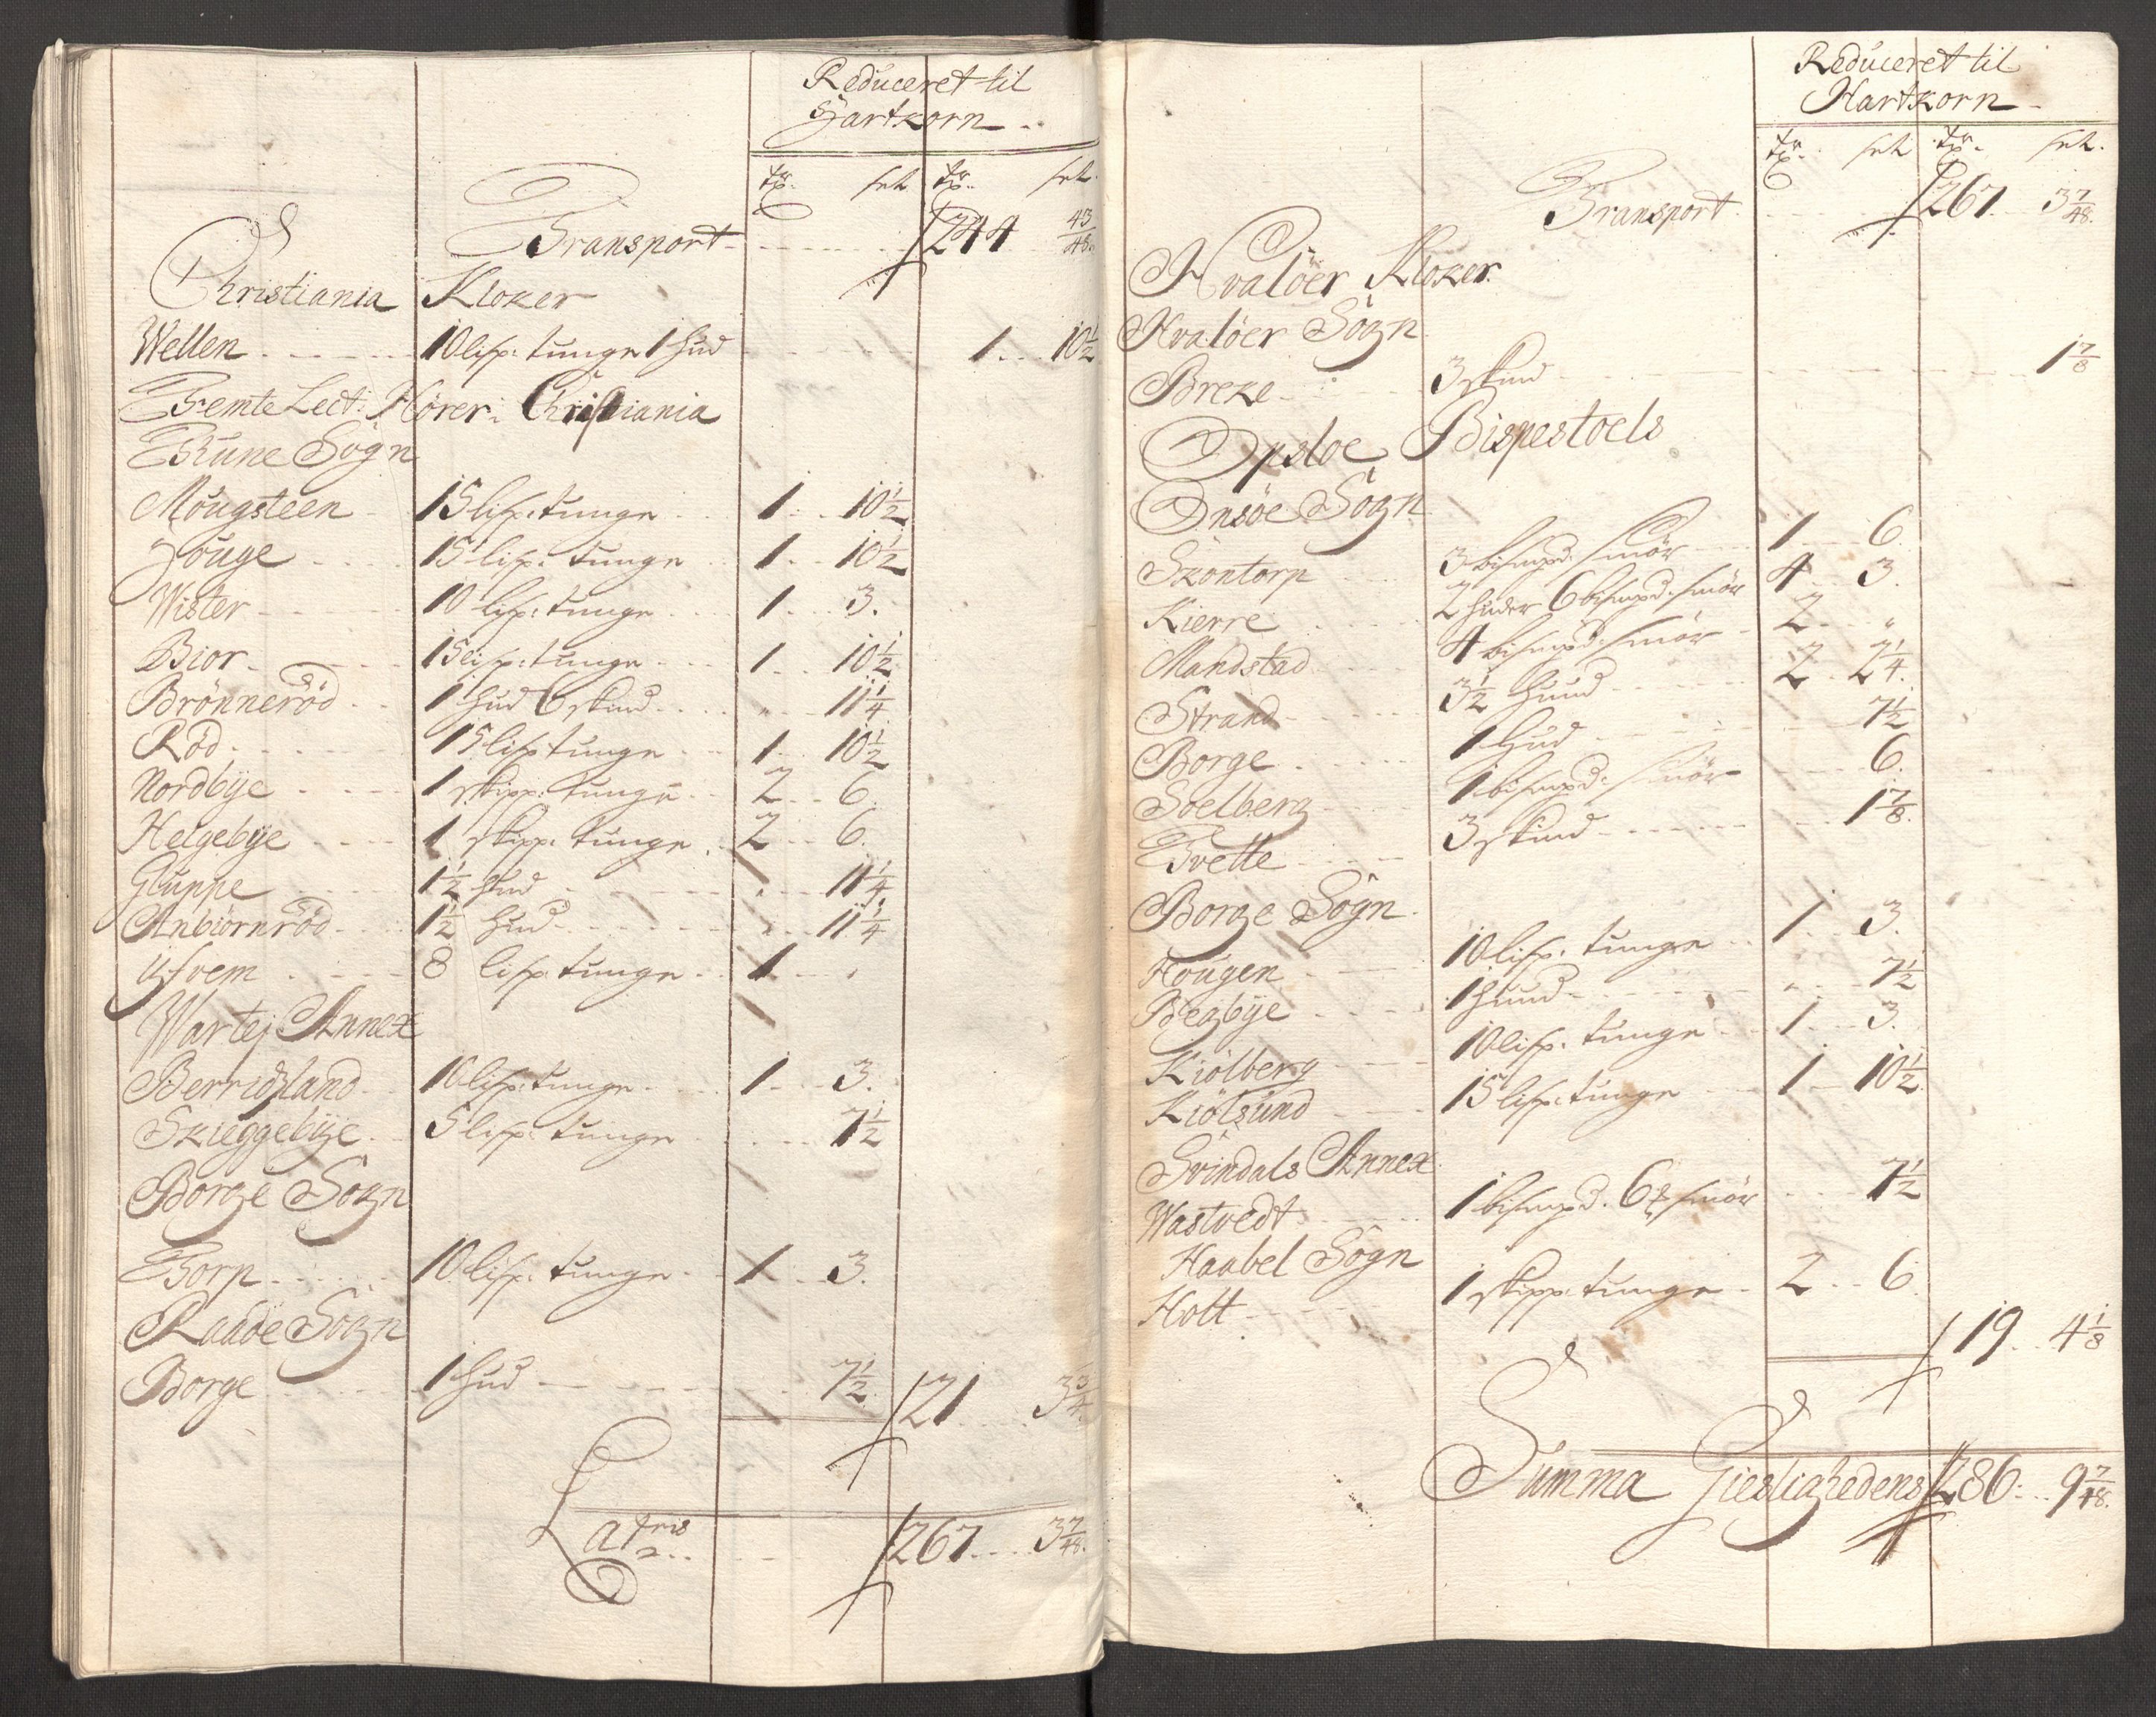 Reduceret til
Hartkorn
tr. sch tr. sch.
Transport 244 43/48
Christiania Kloker
Wellen 10 lisp: tunge 1 hud 1 10½
Femte Lect: Hörer: Christiania
Thune Sogn
Mougsteen 15 lisp: tunge 1 10½
Houge 15 lisp: tunge 1 10½
Wister 10 lisp: tunge 1 3.
Bior 15 lisp: tunge 1 10½
Brönneröd 1 hud 6 skind " 11¼
Röd 15 lisp tunge 1 10½
Nordbÿe 1 skipp: tunge 2 6.
Helgebÿe 1 skipp: tunge 2 6.
Gluppe 1½ hud " 11¼
Anbiörnröd 1½ hud " 11¼
Ulfvem 8 lisp tunge 1 "
Wartej Annex
Berridsland 10 lisp: tunge 1 3.
Skieggebÿe 5 lisp: tunge 7½
Borge Sogn
Torp 10 lisp: tunge 1 3.
Raade Sogn
Borge 1 hud 7½ 21 3¾
Latris 267 3 7/48.
Reduceret til
Hartkorn
tr. sch tr. sch.
Transport 267 3 7/48.
Hvalöer Kloker.
Hvalöer Sogn
Breke 3 skind 1⅞
Opsloe Bispestoels
Onsöe Sogn
Skontorp 3 bismpd: smör 1 6
Kierre 2 huder 6 bismpd: smör 4 3.
Mandstad 4 bismpd: smör 2 "
Strand 3½ huud 2 2¼.
Borge 1 Hud 7½
Soelberg 1 bismpd: smör 6.
Tvette 3 skind 1⅞.
Borge Sogn.
Hougen 10 lisp: tunge 1 3.
Begbÿe 1 huud " 7½
Kiölberg 10 lisp: tunge 1 3.
Kiölsund 15 lisp: tunge 1 10½
Svindals Annex
Wastvedt 1 bismpd. 6 smör 7½
Haabel Sogn
Holt 1 skipp: tunge 2 6
19 4⅛
Summa Giestlighedens 286 9 7/48.